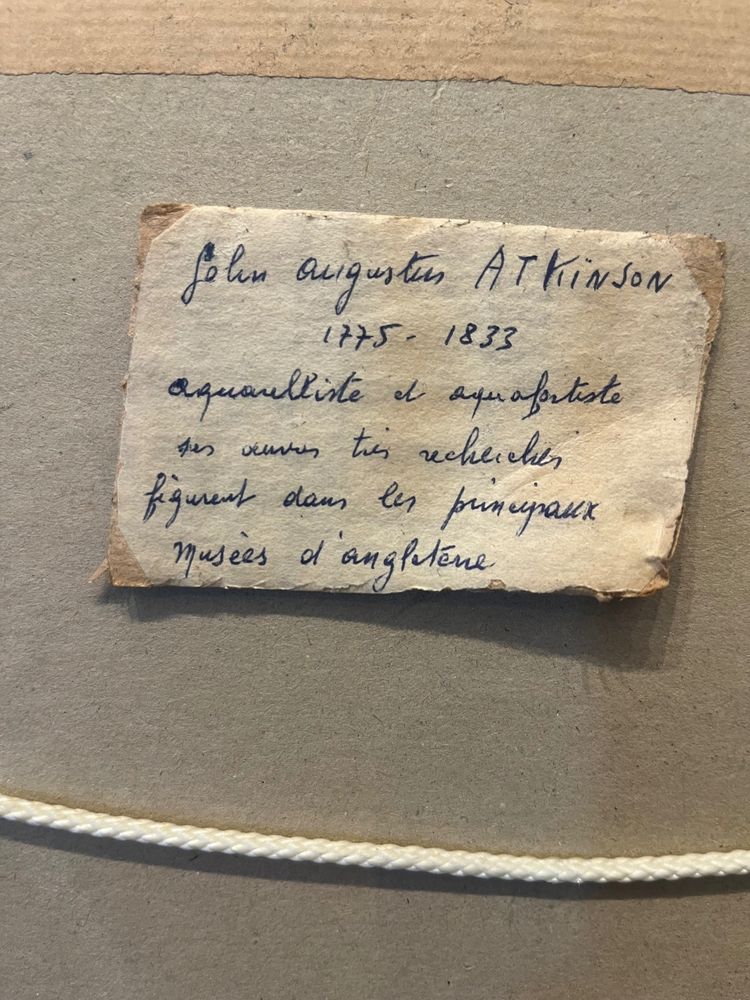 John augustus ATKINSON
1775 - 1833
aquarelliste et aquafortiste
ses œuvres très recherchés
figurent dans les principaux
Musées d'angleterre